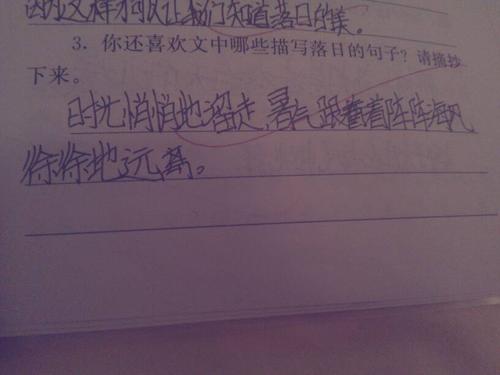 因为这样才可以让我们知道落日的美。
3. 你还喜欢文中哪些描写落日的句子？请摘抄
下来。
时光悄悄地溜走,暑气跟着着阵阵海风
徐徐地远离。